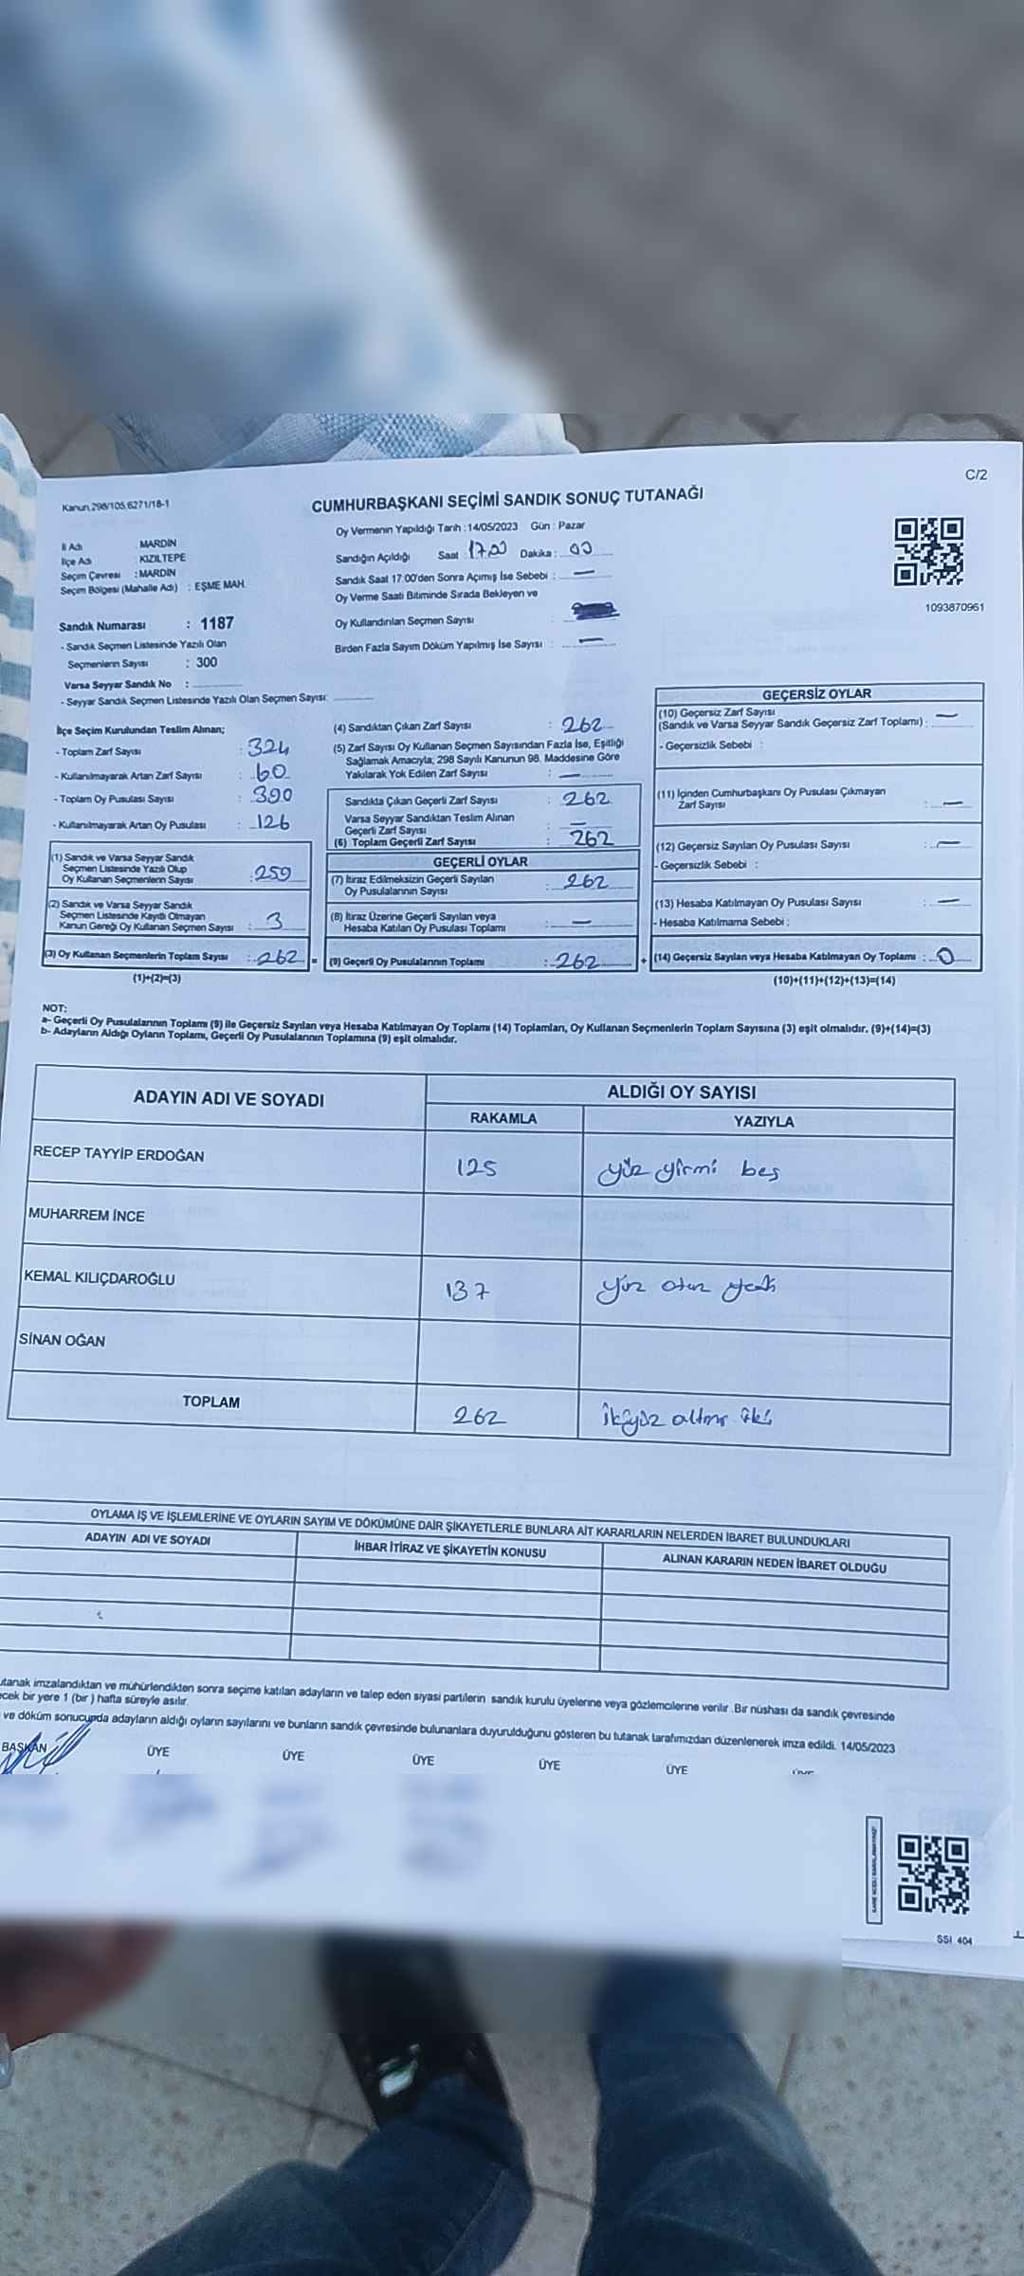 C/2
Kanun.298/105.6271/18-1
CUMHURBAŞKANI SEÇİMİ SANDIK SONUÇ TUTANAĞI
Oy Vermenin Yapıldığı Tarih : 14/05/2023 Gün : Pazar
İl Adı MARDİN
İlçe Adı : KIZILTEPE
Seçim Çevresi : MARDİN
Seçim Bölgesi (Mahalle Adı) : EŞME MAH.
Sandığın Açıldığı Saat 17.00 Dakika : 00
Sandık Saat 17:00'den Sonra Açımış İse Sebebi : —
Oy Verme Saati Bitiminde Sırada Bekleyen ve
Oy Kullandırılan Seçmen Sayısı :
Birden Fazla Sayım Döküm Yapılmış İse Sayısı : —
1093870961
Sandık Numarası : 1187
- Sandık Seçmen Listesinde Yazılı Olan
Seçmenlerin Sayısı : 300
Varsa Seyyar Sandık No :
- Seyyar Sandık Seçmen Listesinde Yazılı Olan Seçmen Sayısı:
İlçe Seçim Kurulundan Teslim Alınan;
- Toplam Zarf Sayısı : 324
- Kullanılmayarak Artan Zarf Sayısı : 60
- Toplam Oy Pusulası Sayısı : 390
- Kullanılmayarak Artan Oy Pusulası : 126
(1) Sandık ve Varsa Seyyar Sandık
Seçmen Listesinde Yazılı Olup
Oy Kullanan Seçmenlerin Sayısı : 259
(2) Sandık ve Varsa Seyyar Sandık
Seçmen Listesinde Kayıtlı Olmayan
Kanun Gereği Oy Kullanan Seçmen Sayısı : 3
(3) Oy Kullanan Seçmenlerin Toplam Sayısı : 262
(1)+(2)=(3)
(4) Sandıktan Çıkan Zarf Sayısı : 262
(5) Zarf Sayısı Oy Kullanan Seçmen Sayısından Fazla İse, Eşitliği
Sağlamak Amacıyla; 298 Sayılı Kanunun 98. Maddesine Göre
Yakılarak Yok Edilen Zarf Sayısı : —
Sandıkta Çıkan Geçerli Zarf Sayısı : 262
Varsa Seyyar Sandıktan Teslim Alınan
Geçerli Zarf Sayısı : —
(6) Toplam Geçerli Zarf Sayısı : 262
GEÇERLİ OYLAR
(7) İtiraz Edilmeksizin Geçerli Sayılan
Oy Pusulalarının Sayısı : 262
(8) İtiraz Üzerine Geçerli Sayılan veya
Hesaba Katılan Oy Pusulası Toplamı : —
= (9) Geçerli Oy Pusulalarının Toplamı : 262 +
GEÇERSİZ OYLAR
(10) Geçersiz Zarf Sayısı
(Sandık ve Varsa Seyyar Sandık Geçersiz Zarf Toplamı) : —
- Geçersizlik Sebebi :
(11) İçinden Cumhurbaşkanı Oy Pusulası Çıkmayan
Zarf Sayısı : —
(12) Geçersiz Sayılan Oy Pusulası Sayısı : —
- Geçersizlik Sebebi :
(13) Hesaba Katılmayan Oy Pusulası Sayısı : —
- Hesaba Katılmama Sebebi :
(14) Geçersiz Sayılan veya Hesaba Katılmayan Oy Toplamı : 0
(10)+(11)+(12)+(13)=(14)
NOT:
a- Geçerli Oy Pusulalarının Toplamı (9) ile Geçersiz Sayılan veya Hesaba Katılmayan Oy Toplamı (14) Toplamları, Oy Kullanan Seçmenlerin Toplam Sayısına (3) eşit olmalıdır. (9)+(14)=(3)
b- Adayların Aldığı Oyların Toplamı, Geçerli Oy Pusulalarının Toplamına (9) eşit olmalıdır.
ADAYIN ADI VE SOYADI ALDIĞI OY SAYISI
RAKAMLA YAZIYLA
RECEP TAYYİP ERDOĞAN 125 yüz yirmi beş
MUHARREM İNCE
KEMAL KILIÇDAROĞLU 137 yüz otuz yedi
SİNAN OĞAN
TOPLAM 262 ikiyüz altmış iki
OYLAMA İŞ VE İŞLEMLERİNE VE OYLARIN SAYIM VE DÖKÜMÜNE DAİR ŞİKAYETLERLE BUNLARA AİT KARARLARIN NELERDEN İBARET BULUNDUKLARI
ADAYIN ADI VE SOYADI İHBAR İTİRAZ VE ŞİKAYETİN KONUSU ALINAN KARARIN NEDEN İBARET OLDUĞU
utanak imzalandıktan ve mühürlendikten sonra seçime katılan adayların ve talep eden siyasi partilerin sandık kurulu üyelerine veya gözlemcilerine verilir. Bir nüshası da sandık çevresinde
ecek bir yere 1 (bir) hafta süreyle asılır.
ve döküm sonucunda adayların aldığı oyların sayılarını ve bunların sandık çevresinde bulunanlara duyurulduğunu gösteren bu tutanak tarafımızdan düzenlenerek imza edildi. 14/05/2023
BAŞKAN ÜYE ÜYE ÜYE ÜYE ÜYE
SSİ 404